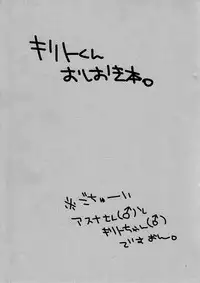 キリトくん
おしおき本。
※ごちゅーい
アスナさん(♂)と
キリトちゃん(♂)
でいさおん。